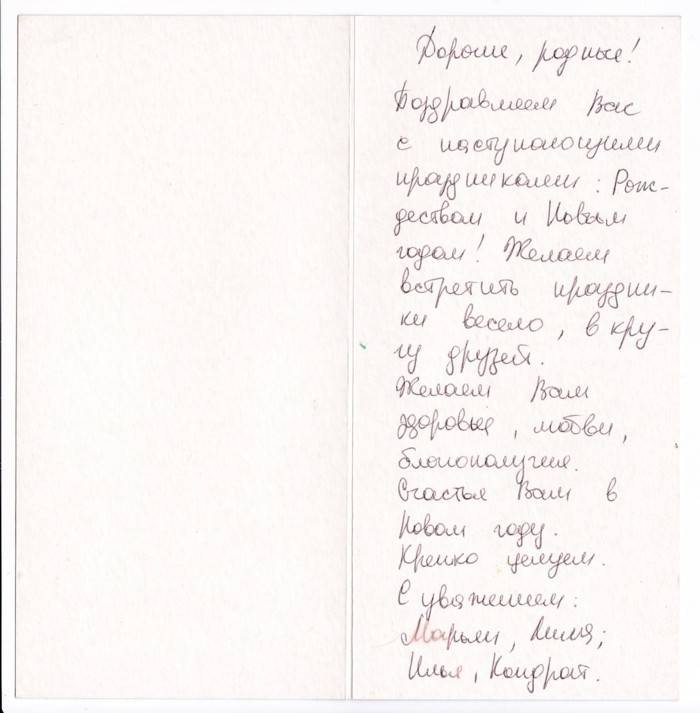 Дорогие, родные!
Поздравляем Вас
с наступающими
праздниками: Рож-
деством и Новым
годом! Желаем
встретить праздни-
ки весело, в кру-
гу друзей.
Желаем Вам
здоровья, любви,
благополучия.
Счастья Вам в
Новом году.
Крепко целуем.
С уважением:
Марьям, Лиля;
Илья, Кондрат.